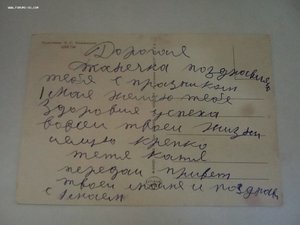 Дорогая
Жанечка поздравляю
тебя с праздником
1 мая желаю тебе
здоровия успеха
во всей твоей жизни
целую крепко
тетя Катя
передай привет
твоей маме и поздрав
с 1 маем